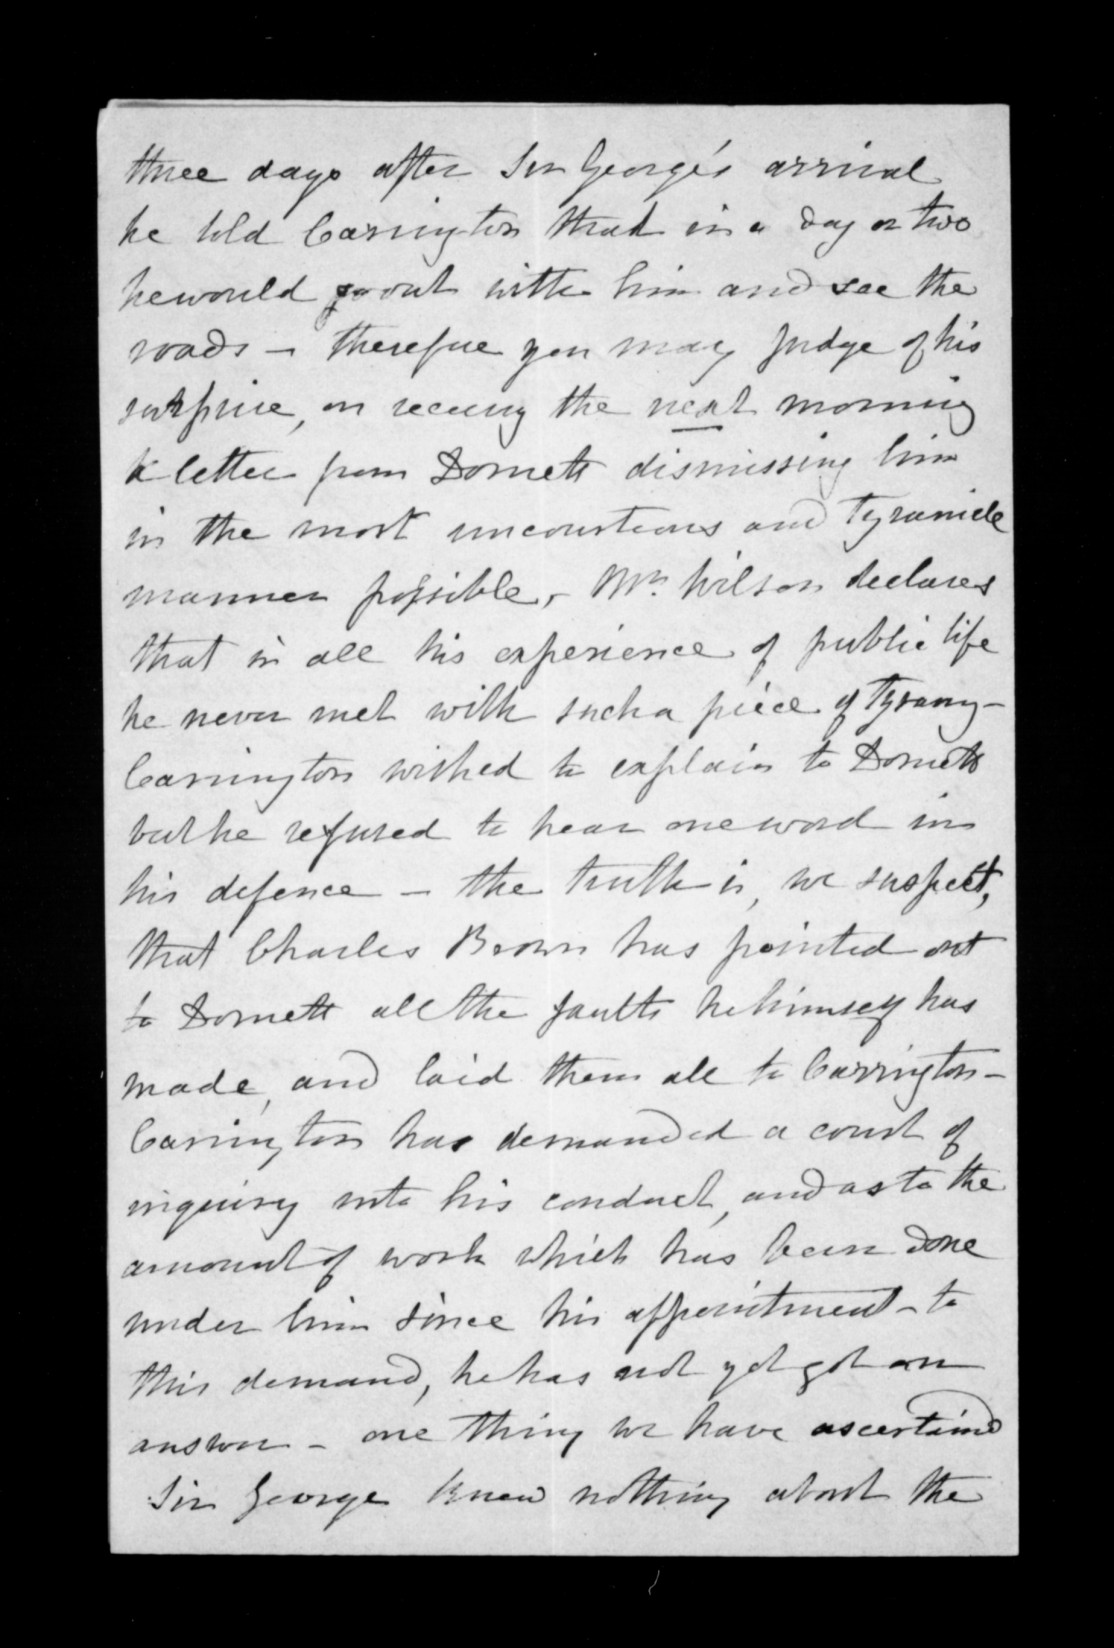 three days after Sir George's arrival
he told Carrington that in a day or two
he would go out with him and see the
roads – therefore you may judge of his
surprise, on receivg the next morning
a letter from Domett dismissing him
in the most uncourteous and tyranicle
manner possible, – Mr. Wilson declares
that in all his experience of public life
he never met with such a piece of tyrany –
Carrington wished to explain to Domett
but he refused to hear one word in
his defence – the truth is, we suspect,
that Charles Brown has pointed out
to Domett all the faults he himself has
made, and laid them all to Carrington –
Carrington has demanded a court of
inquiry into his conduct, and as to the
amount of work which has been done
under him since his appointment – to
this demand, he has not yet got an
answer – one thing we have ascertained
Sir George knew nothing about the